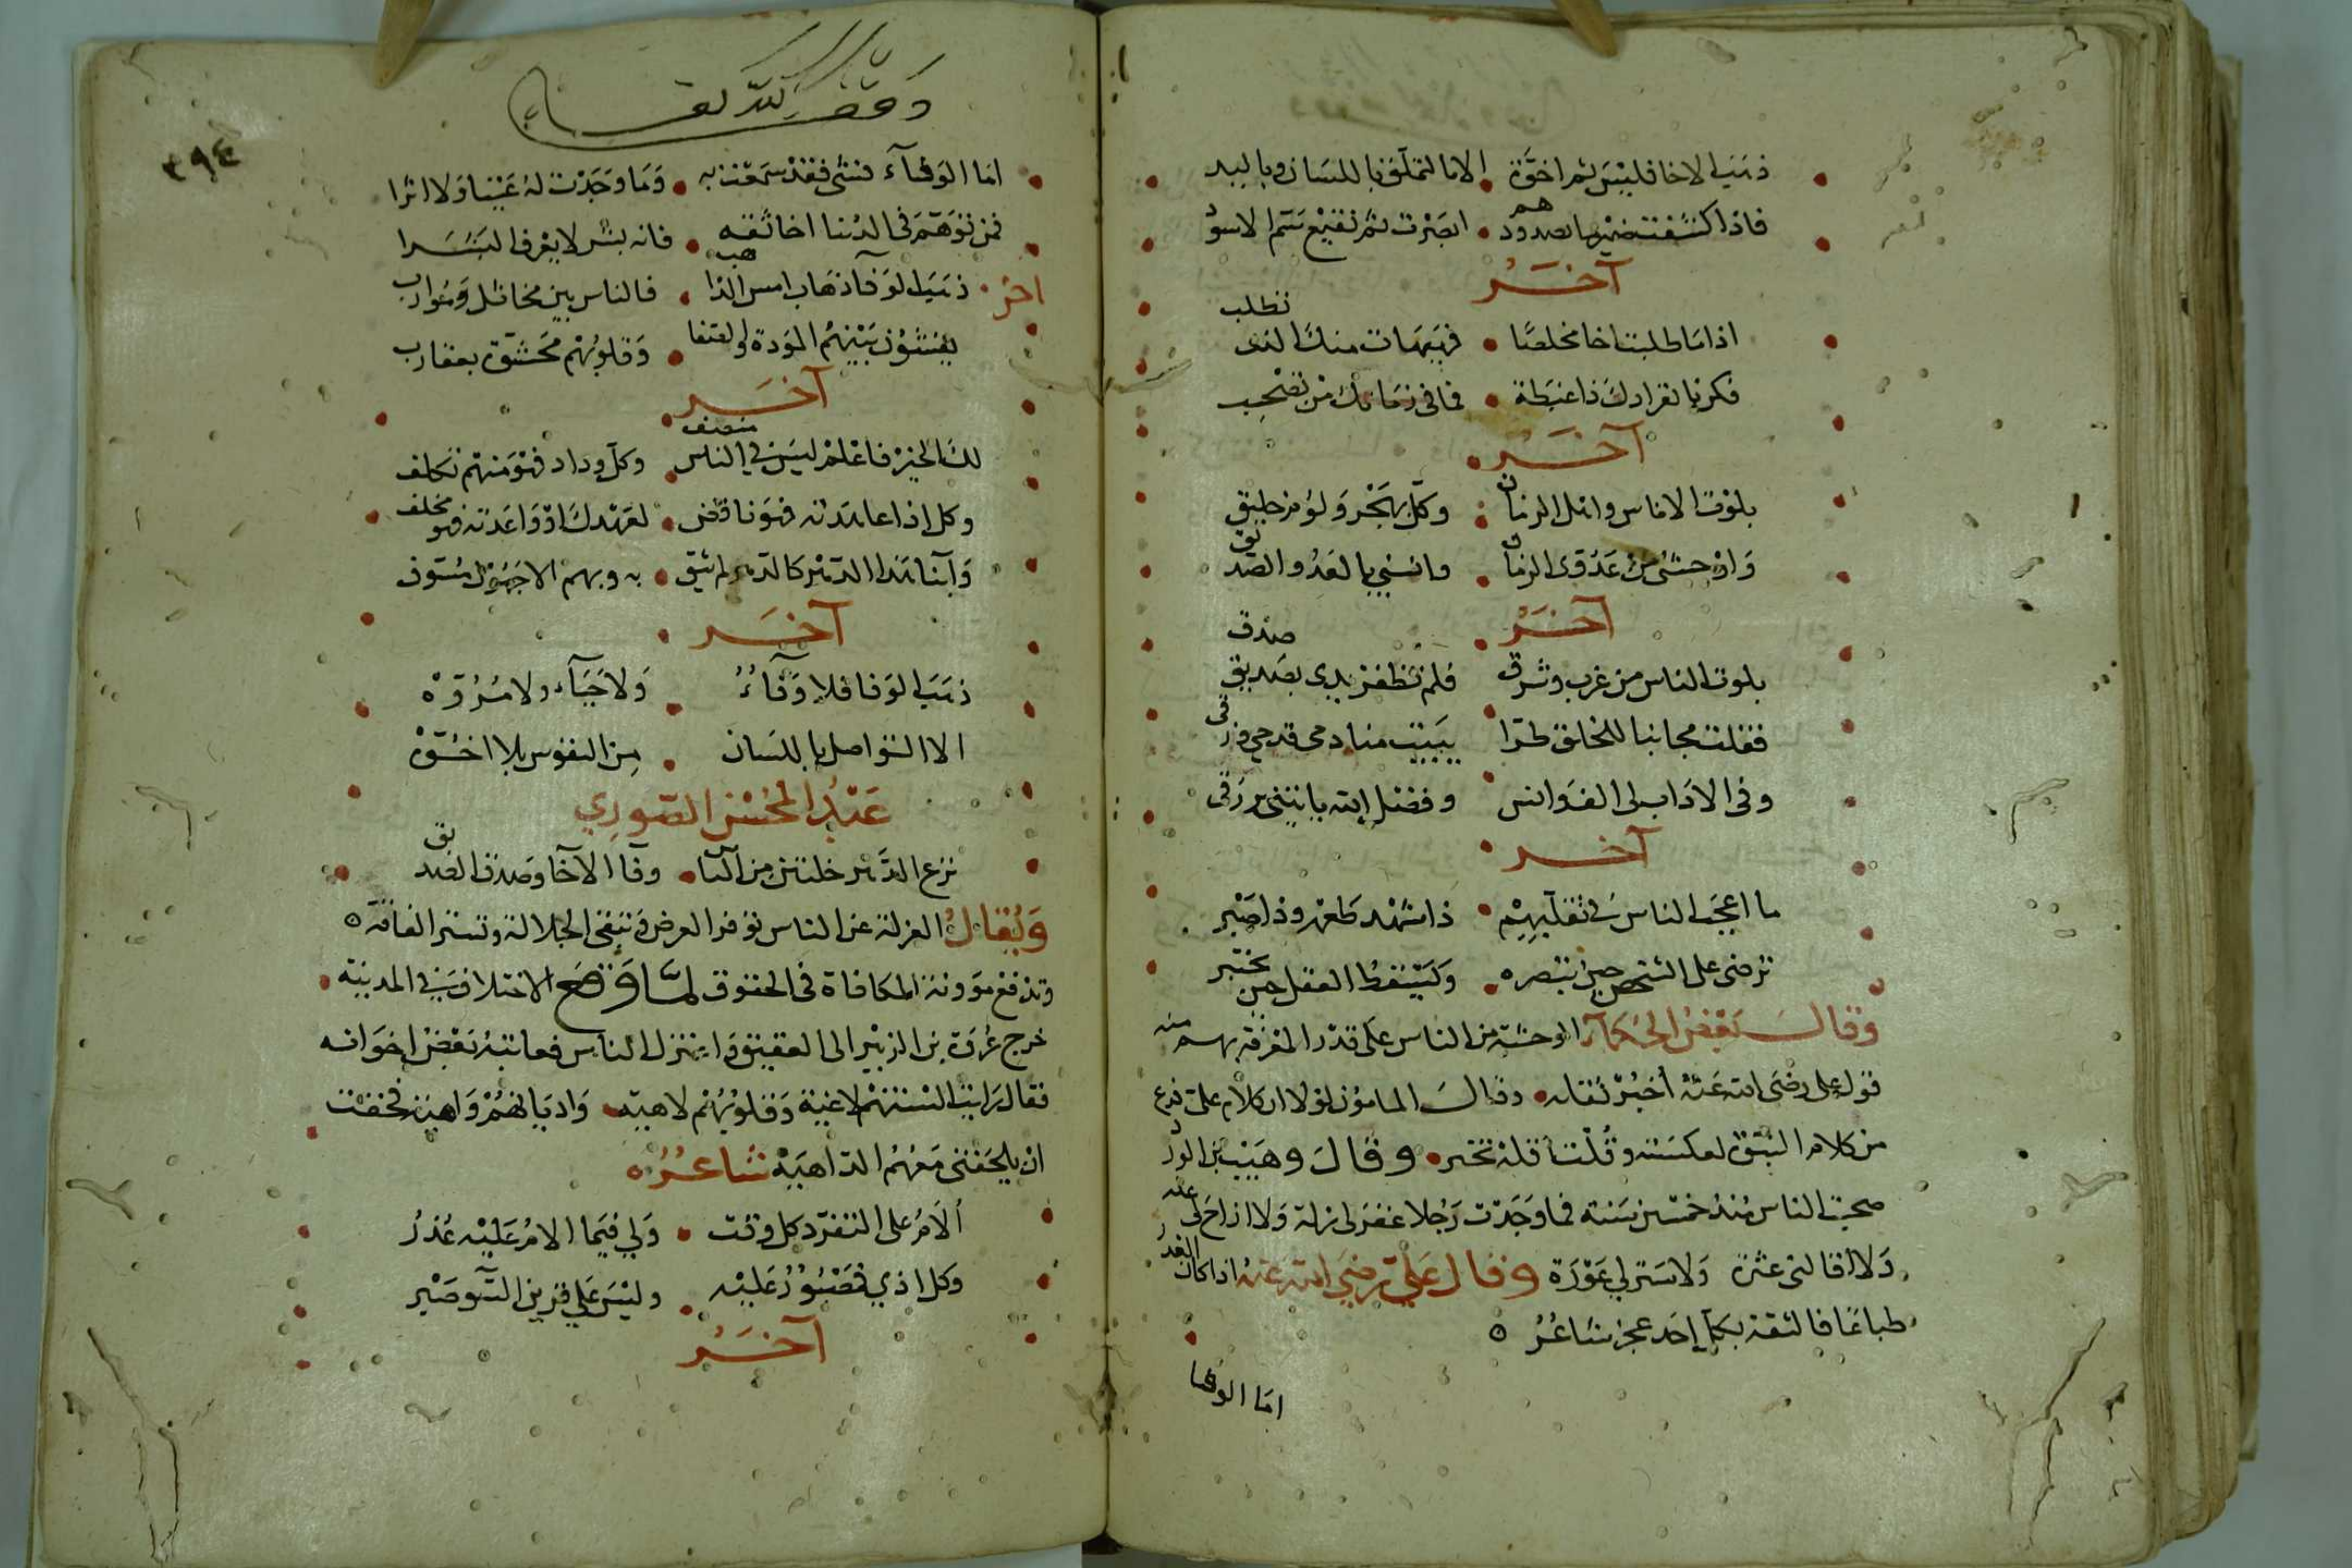 ذهب الاخا فليس ثم اخوة • الا التملق باللسان وباليد
فاذا كشفت ضميرهم بصدودهم • ابصرت ثم نقيع سم الاسود
آخر
اذا ما طلبت اخا مخلصا • فهيهات منك الذى تطلب
فكن بانفرادك ذا غبطة • فما فى زمانك من تصحب
آخر
بلوت الاناس واهل الزمان • وكل بهجر ولوم خليق
واوحشنى من عدوى الزمان • وانسنى بالعدو الصديق
آخر
بلوت الناس من غرب وشرق • فلم تظفر يدى بصديق صدق
فقلت مجانبا للخلق طرا • ببيت منادمى قدحى وزقى
وفى الاداب لى انس • وفضل الله ياتينى برزقى
آخر
ما اعجب الناس فى تقلبهم • ذا شهد طعم وذا صبر
ترضى على الشخص حين تبصره • وكيف نقط العقل حين يختبر
وقال بعض الحكمآ الوحشة من الناس على قدر المعرفة بهم منه
قول على رضى الله عنه أخبر تقله • وقال المامون لولا ان كلام على فرع
من كلام النبوة لعكسته وقلت أقله تخبر • وقال وهيب بن الورد
صحبت الناس منذ خمسين سنة فما وجدت رجلا غفر لى زلة ولا ازاح لى علة
ولا اقالنى عثرة ولا ستر لى عورة وقال على رضى الله عنه اذا كان الغدر
طباعا فالثقة بكل احد عجز شاعر ه
اما الوفا
وقف لله تعالى
٣٩٤
اما الوفآء فشى فقد سمعت به • وما وجدت له عينا ولا اثرا
فمن توهم فى الدنيا اخا ثقة • فانه بشر لا يعرف البشرا
اخر • ذهب الوفآ ذهاب امس الذاهب • فالناس بين مخاتل وموارب
يفشون بينهم المودة والصفا • وقلوبهم محشوة بعقارب
آخر
لك الخير فاعلم ليس فى الناس منصف • وكل وداد فهو منهم تكلف
وكل اذا عاهدته فهو ناقض • لعهدك او واعدته فهو مخلف
وابنا هذا الدهر كالدهر لم يثق • به وبهم الا جهول مسوف
آخر
ذهب الوفا فلا وفآء • ولا حيآء ولا مروة
الا التواصل باللسان • من النفوس بلا اخوة
عبد المحسن الصوري
نزع الدهر خلتين من النا • س وفآ الاخا وصدق الصديق
ويقال العزلة عن الناس توفر العرض وتبقى الجلالة وتستر الفاقة ه
وتدفع مؤونة المكافاة فى الحقوق لما وقع الاختلاف فى المدينة •
خرج عروة بن الزبير الى العقيق واعتزل الناس فعاتبه بعض اخوانه
فقال رايت السنتهم لاغية وقلوبهم لاهية • واديانهم واهية فخفت
ان يلحقنى معهم الداهية شاعر ه
ألام على التفرد كل وقت • ولي فيما الام عليه عذر
وكل اذي فصبور عليه • وليس على قرين السو صبر
آخر